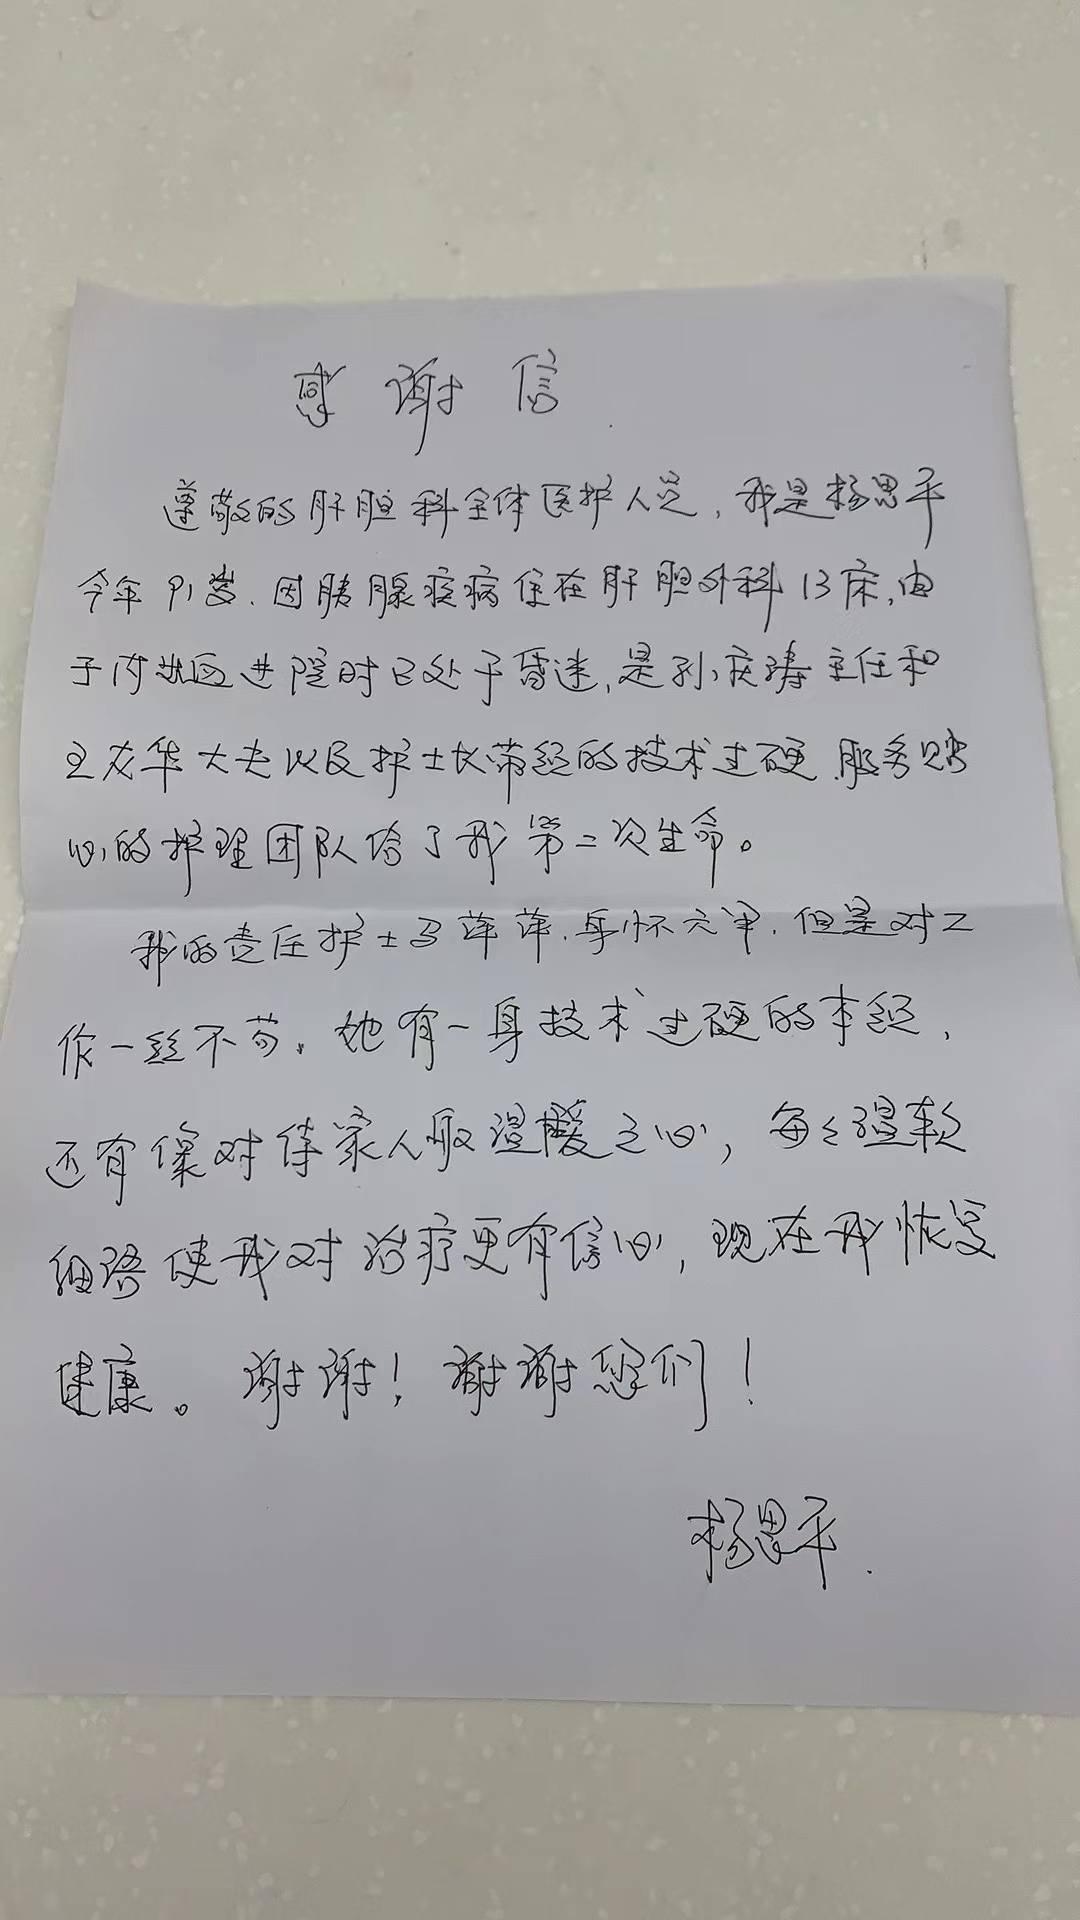 感谢信
尊敬的肝胆科全体医护人员，我是杨思平
今年91岁.因胰腺疾病住在肝胆外科13床,由
于内出血进院时已处于昏迷,是孙庆涛主任和
王友华大夫以及护士长带经的技术过硬.服务贴
心的护理团队给了我第二次生命。
我的责任护士马萍萍.身怀六甲.但是对工
作一丝不苟。她有一身技术过硬的本经,
还有像对待家人般温暖之心,每々温软
细语使我对治疗更有信心,现在我恢复
健康。谢谢!谢谢您们!
杨思平.